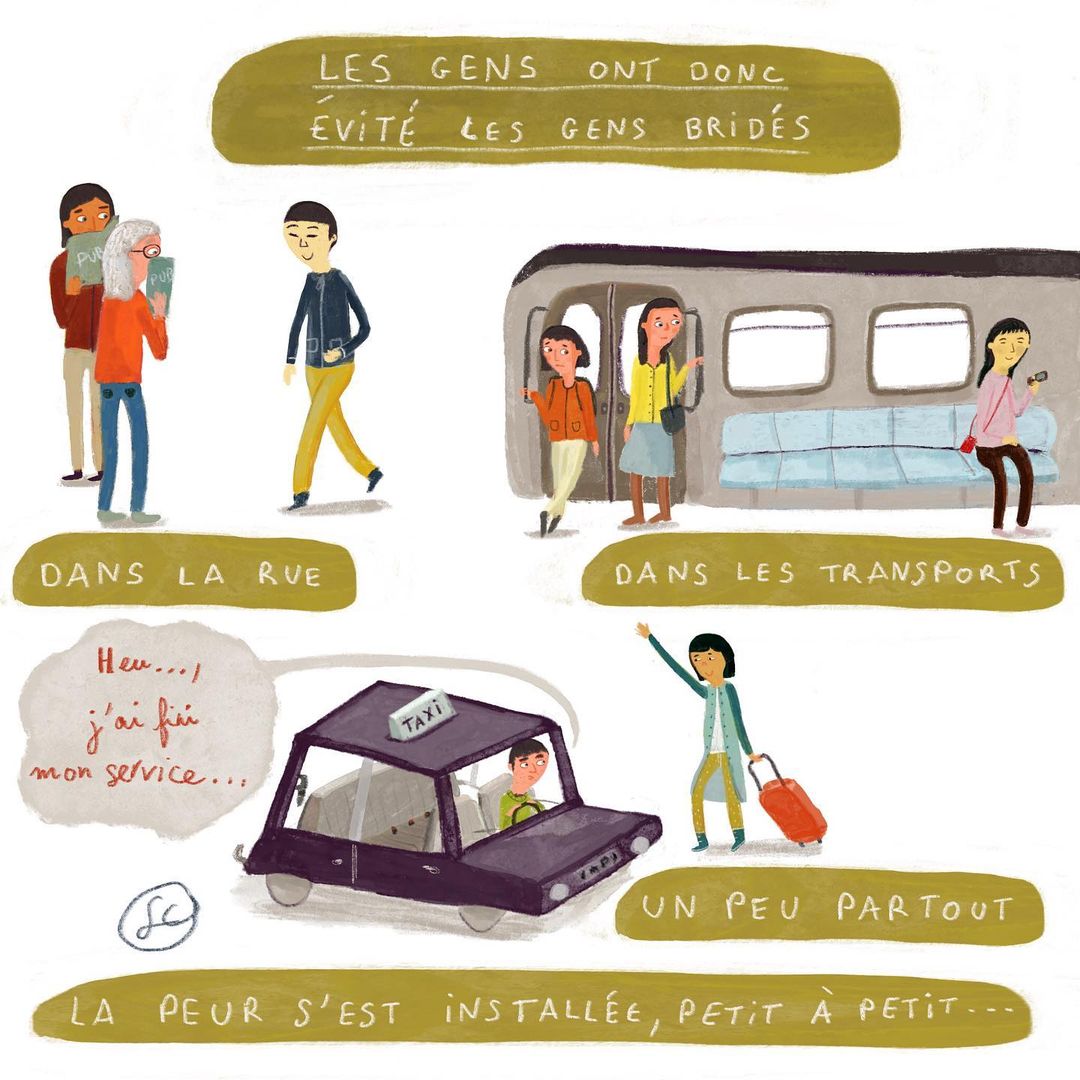 LES GENS ONT DONC
ÉVITÉ LES GENS BRIDÉS
PUB
PUB
DANS LA RUE
DANS LES TRANSPORTS
Heu...,
j'ai fini
mon service...
TAXI
UN PEU PARTOUT
LA PEUR S'EST INSTALLÉE, PETIT À PETIT...